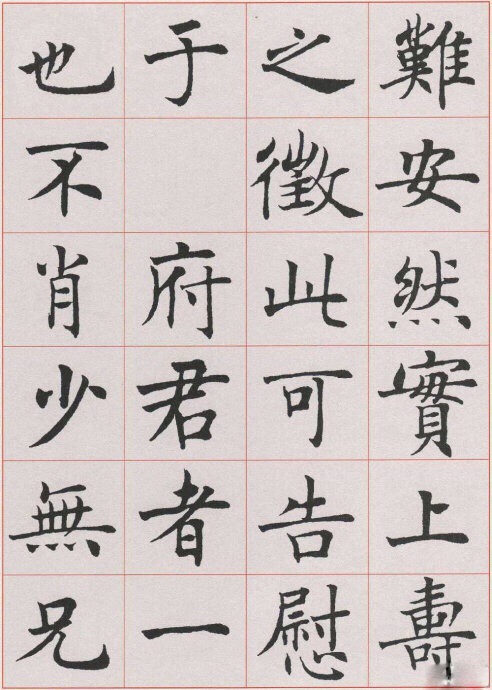 難安然實上壽
之徵此可告慰
于 府君者一
也不肖少無兄